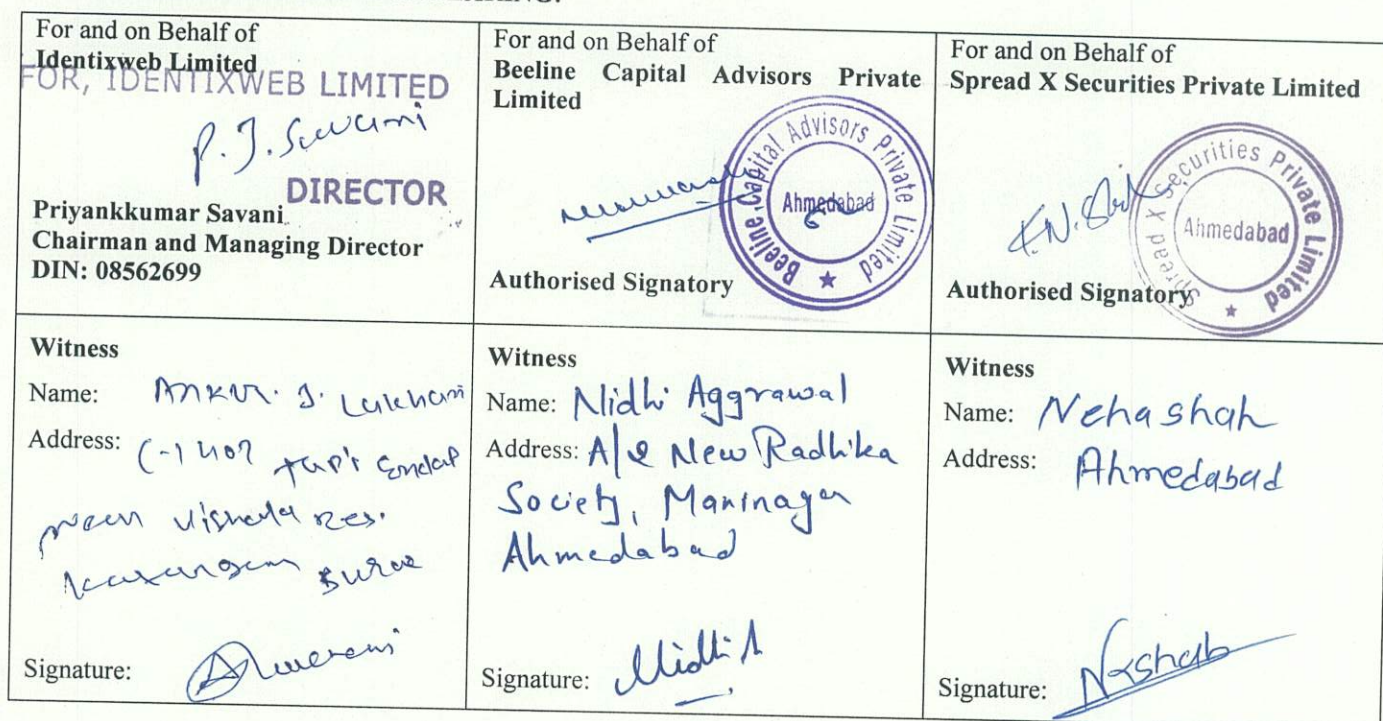 For and on Behalf of
Identixweb Limited
FOR, IDENTIXWEB LIMITED
P. J. Savani
DIRECTOR
Priyankkumar Savani
Chairman and Managing Director
DIN: 08562699
For and on Behalf of
Beeline Capital Advisors Private
Limited
Beeline Capital Advisors Private Limited
Ahmedabad
★
Authorised Signatory
For and on Behalf of
Spread X Securities Private Limited
Spread X Securities Private Limited
Ahmedabad
★
Authorised Signatory
Witness
Name: Ankur. J. Lakhani
Address:
Witness
Name: Nidhi Aggrawal
Address: New Radhika
Society, Maninagar
Ahmedabad
Signature: Nidhi A
Witness
Name: Neha shah
Address: Ahmedabad
Signature: Nrshah
Signature: